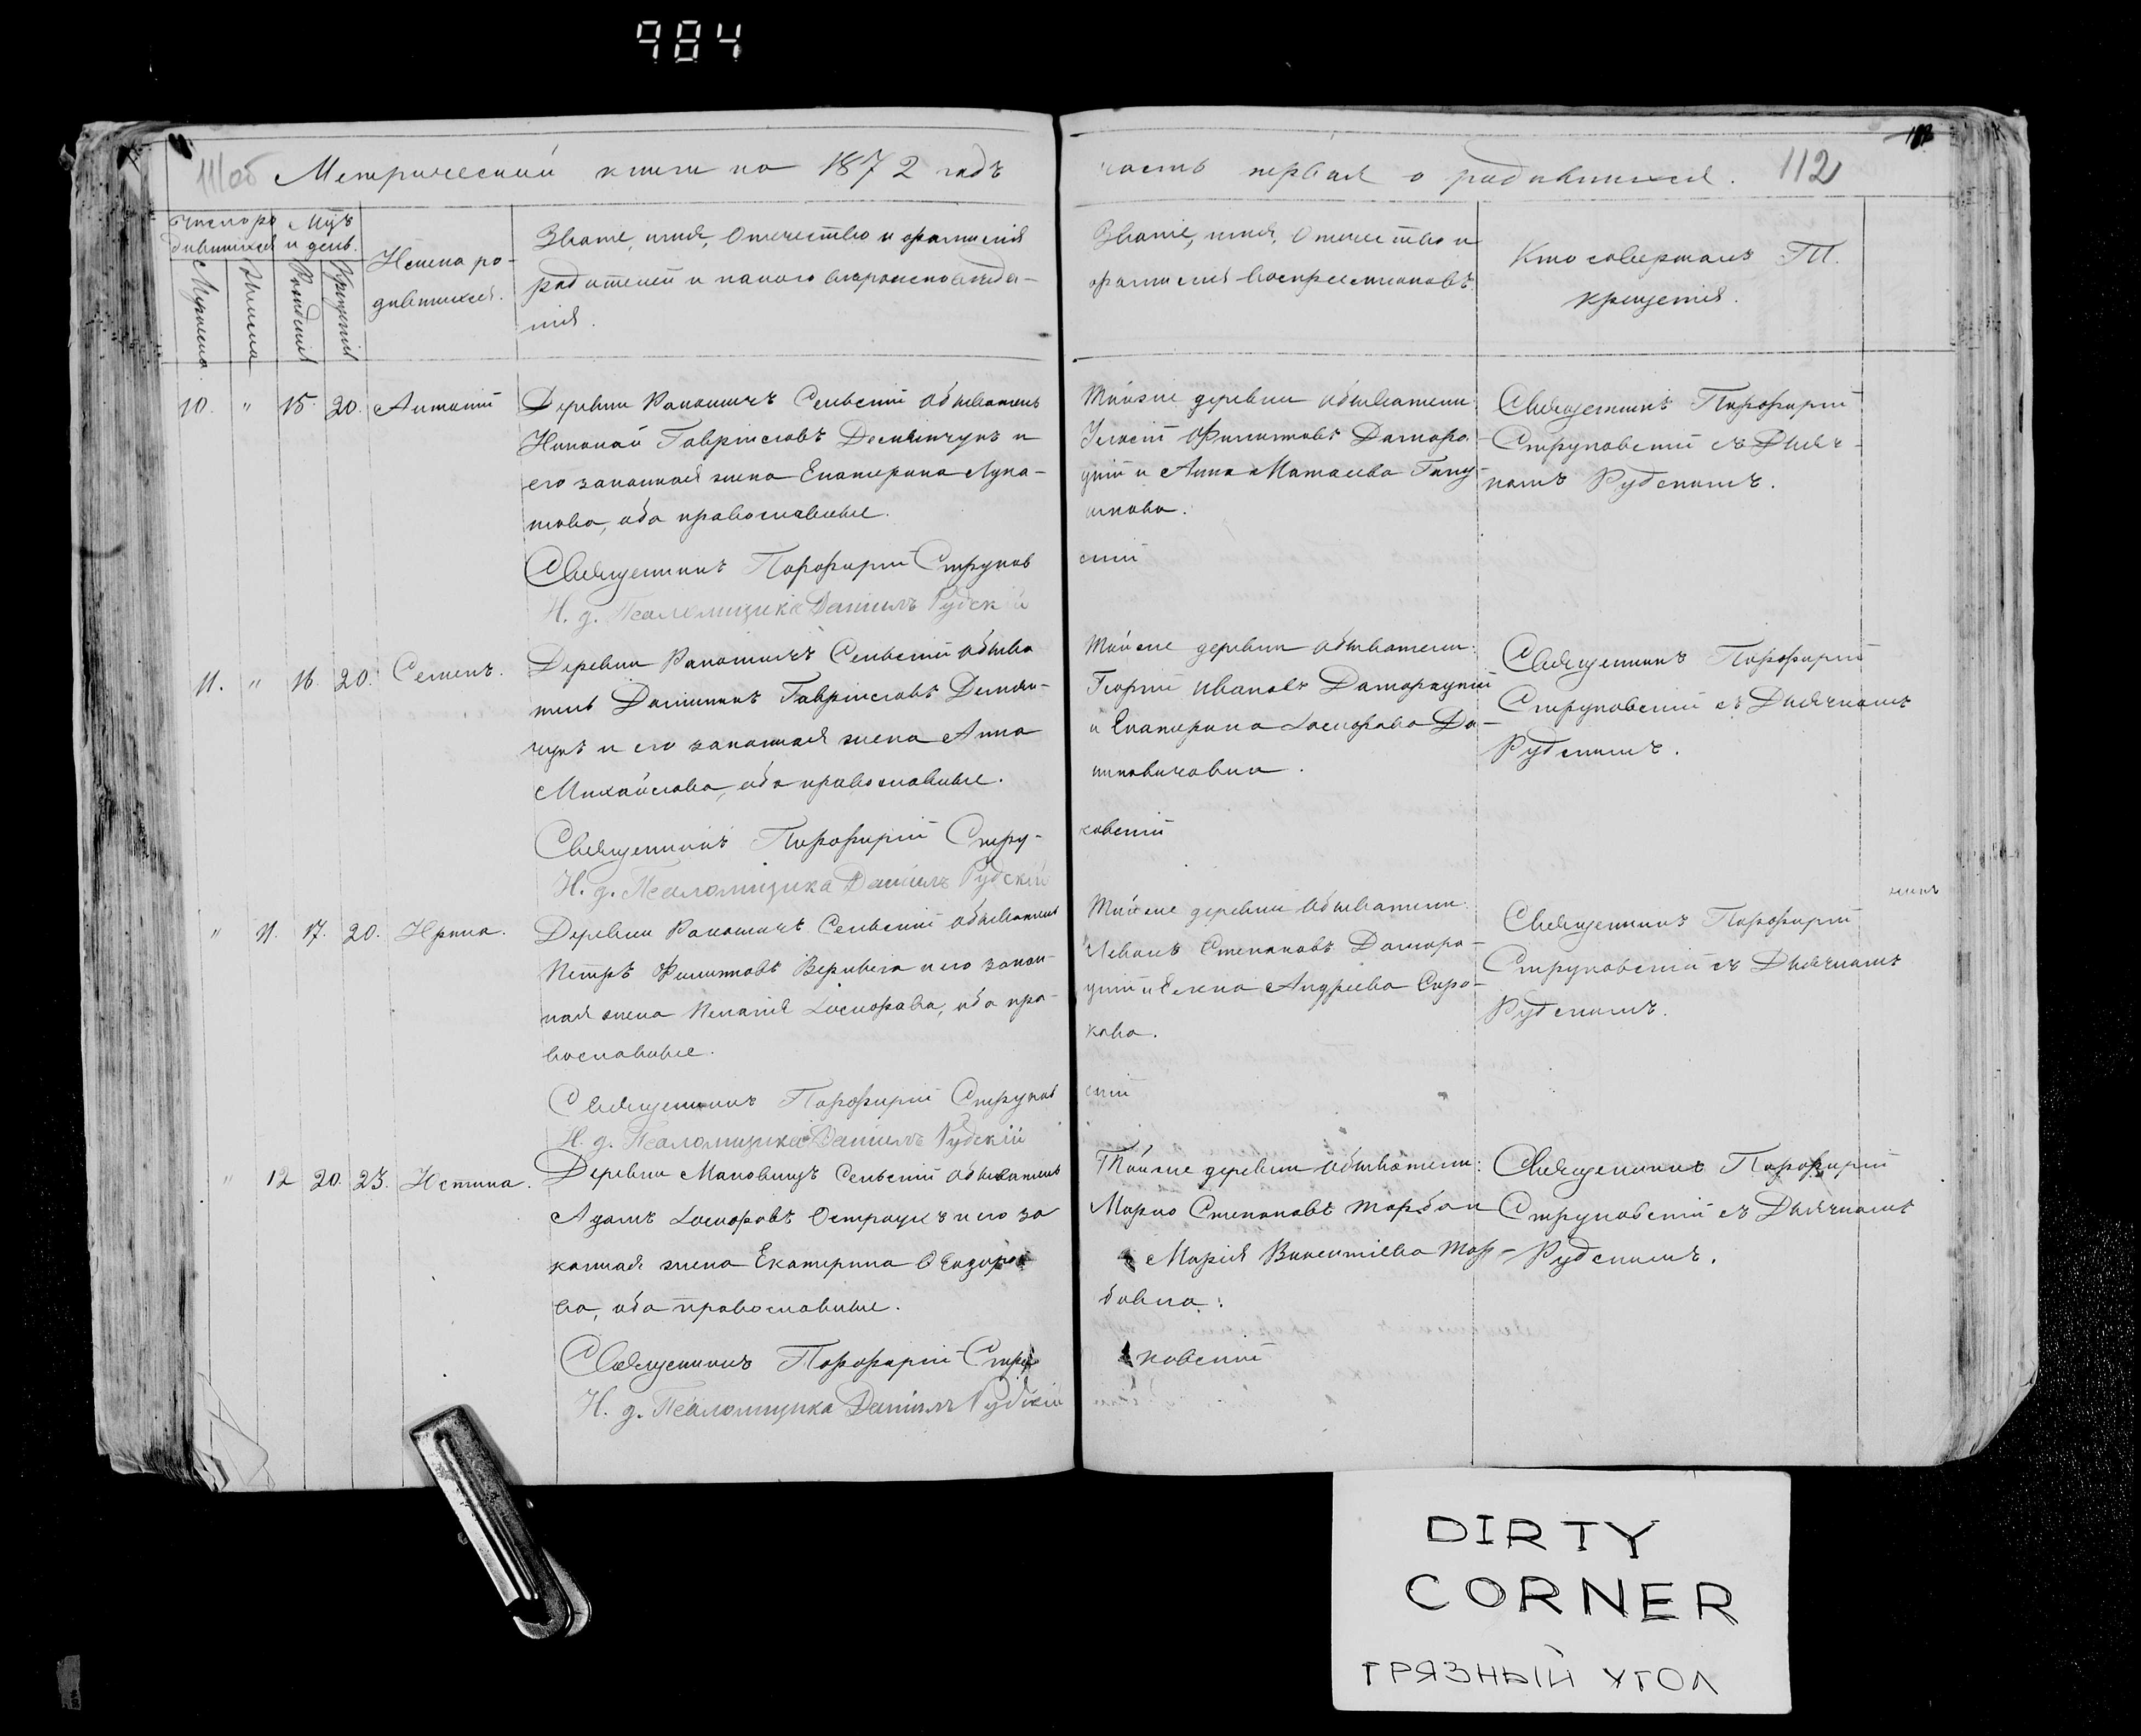 984
111об Метрической книги на 1872 годъ
часть первая о родившихся. 112
Число ро
дившихся
Мцъ
и день.
Мужеска
Женска
Рожденія
Крещенія
Имена ро-
дившихся.
Званіе, имя, Отчество и фамилія
родителей и какого вероисповеда-
нія.
Званіе, имя, Отчество и
фамилія воспреемниковъ
Кто совершалъ Т.
крещенія.
10. " 15. 20. Антоній
Деревни Сельскій обыватель
Николай Гавріиловъ и
его законная жена Екатерина Лука-
шова, оба православные.
Священникъ Порфирій Струков
И. д. Псаломщика Даніилъ Рудскій
Тойже деревни обыватели
Филиповъ Даморо-
цкій и Анна Матѣева
скій
Священникъ Порфирій
Струковскій съ Дьяч-
комъ Рудскимъ.
11. " 16. 20. Семенъ.
Деревни Сельскій обыва
тель Гавріиловъ Демян-
чукъ и его законная жена Анна
Михайлова, оба православные.
Священникъ Порфирій Стру-
И. д. Псаломщика Даніилъ Рудскій
Тойже деревни обыватели:
Георгій Ивановъ Даморацкій
и Екатерина
ковскій
Священникъ Порфирій
Струковскій съ Дьячкомъ
Рудскимъ.
" 11. 17. 20. Ирина.
Деревни Сельскій обыватель
Петръ Филиповъ и его закон-
ная жена Пелагія оба пра-
вославные.
Священникъ Порфирій Струков
И. д. Псаломщика Даніилъ Рудскій
Тойже деревни обыватели:
Степановъ Даморо-
цкій и Елена Андреева Соро-
кова.
скій
Священникъ Порфирій
Струковскій съ Дьячкомъ
Рудскимъ.
" 12 20. 23. Устина.
Деревни Маковищъ Сельскій обыватель
Адамъ Остраукъ и его за
конная жена Екатерина
ва, оба православные.
Священникъ Порфирій Стру
И. д. Псаломщика Даніилъ Рудскій
Тойже деревни обыватели:
Марко Степановъ Торбан
и Марія Викентіева Тор-
ковскій
Священникъ Порфирій
Струковскій съ Дьячкомъ
Рудскимъ.
DIRTY
CORNER
ГРЯЗНЫЙ УГОЛ